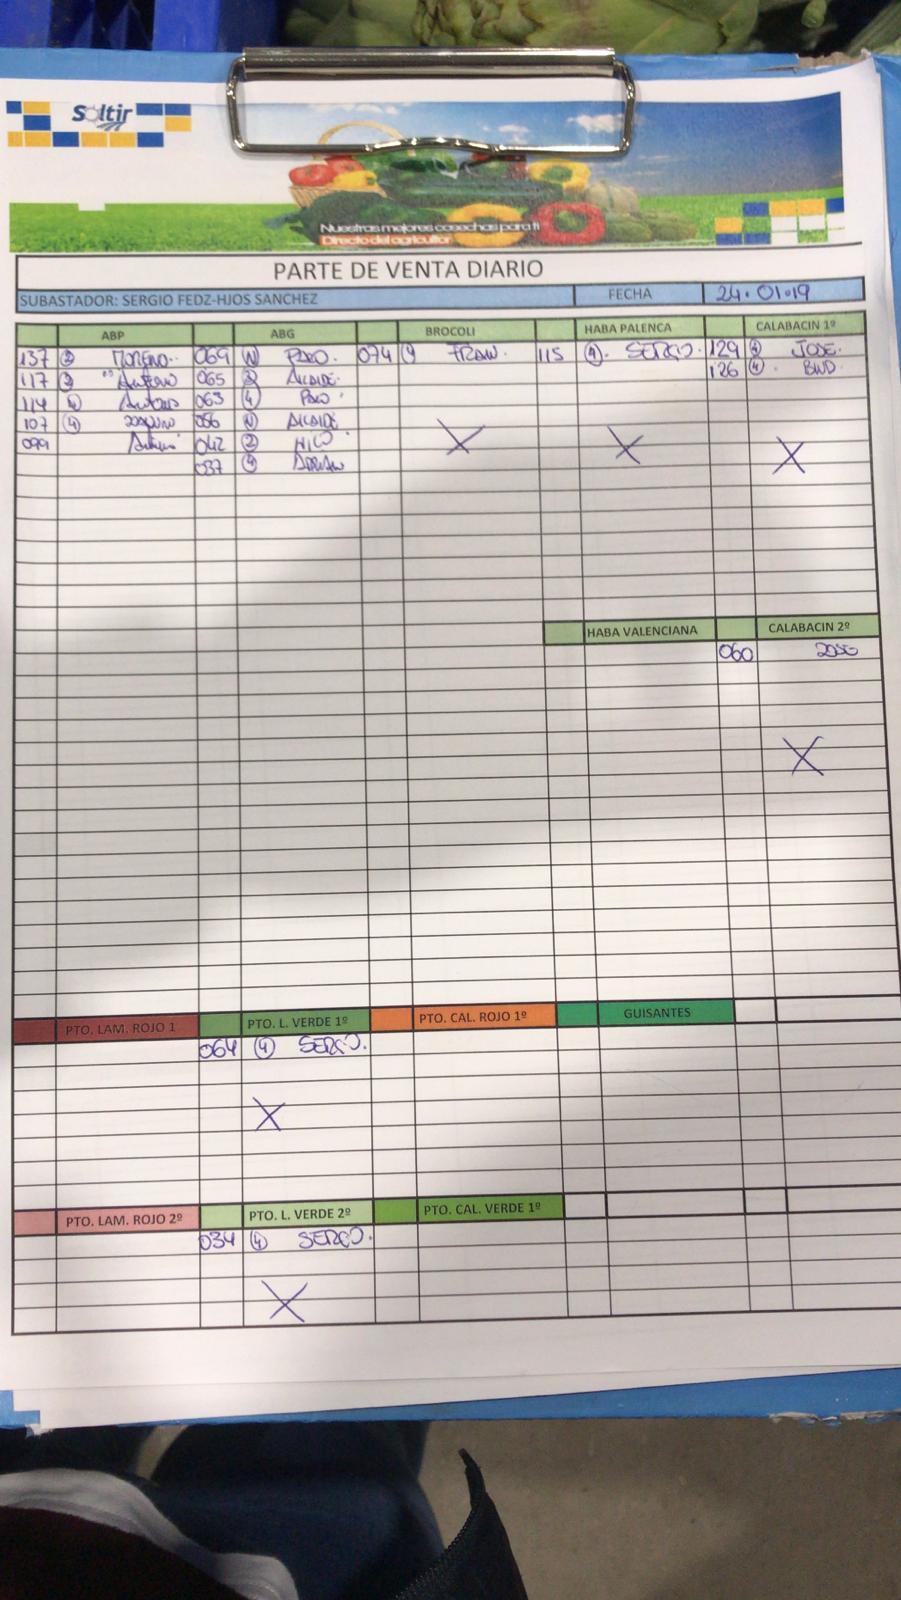 Soltir
Nuestras mejores cosechas para ti
Directo del agricultor
PARTE DE VENTA DIARIO
SUBASTADOR: SERGIO FEDZ-HJOS SANCHEZ FECHA 24.01.19
ABP ABG BROCOLI HABA PALENCA CALABACIN 1º
137 MORENO. 069 PACO. 074 FRAN. 115 SERGO. 129 JOSE.
117 Antonio 065 ALCAIDE. 126 4 BND.
114 4 Antonio 063 4 PACO
107 4 JOAQUIN 056 ALCAIDE
099 042 2 NICO
037 4 ADRIAN
HABA VALENCIANA CALABACIN 2º
060 JOSE
PTO. LAM. ROJO 1 PTO. L. VERDE 1º PTO. CAL. ROJO 1º GUISANTES
064 4 SERGO.
PTO. LAM. ROJO 2º PTO. L. VERDE 2º PTO. CAL. VERDE 1º
034 4 SERGO.